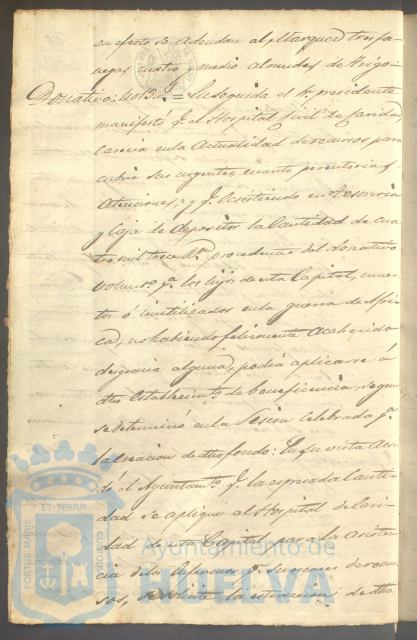 en efecto se adeudan al Marques tres fa-
negas cuatro y medio almudes de trigo.
Donativo: 4013 r.s = En seguida el Sr. presidente
manifestó q.e el Hospital Civil de Caridad
carecia en la actualidad de recursos para
cubrir sus urgentes, cuanto perentorias
atenciones, y q.e existiendo en Tesoreria
y Caja de depositos la Cantidad de cua-
tro mil trece R.s procedentes del donativo
volunt.o p.a los hijos de esta Capital, muer-
tos ó inutilizados en la guerra de Afri-
ca, no habiendo felizmente acaecido
desgracia alguna, podia aplicarse á
dho establecimt.o de beneficencia, segun
se determinó en la Sesion celebrada p.a
la creacion de dho fondo: En su vista acor-
dó el Ayuntam.to q.e la espresada Canti-
dad se aplique al Hospital de Cari-
dad de esta Capital para la asisten-
cia de los enfermos q.e carecen de recur-
sos, se solicite la estraccion de dha
PORTUS MARIS
ET TERRAE
CUSTODIA
Ayuntamiento de
HUELVA